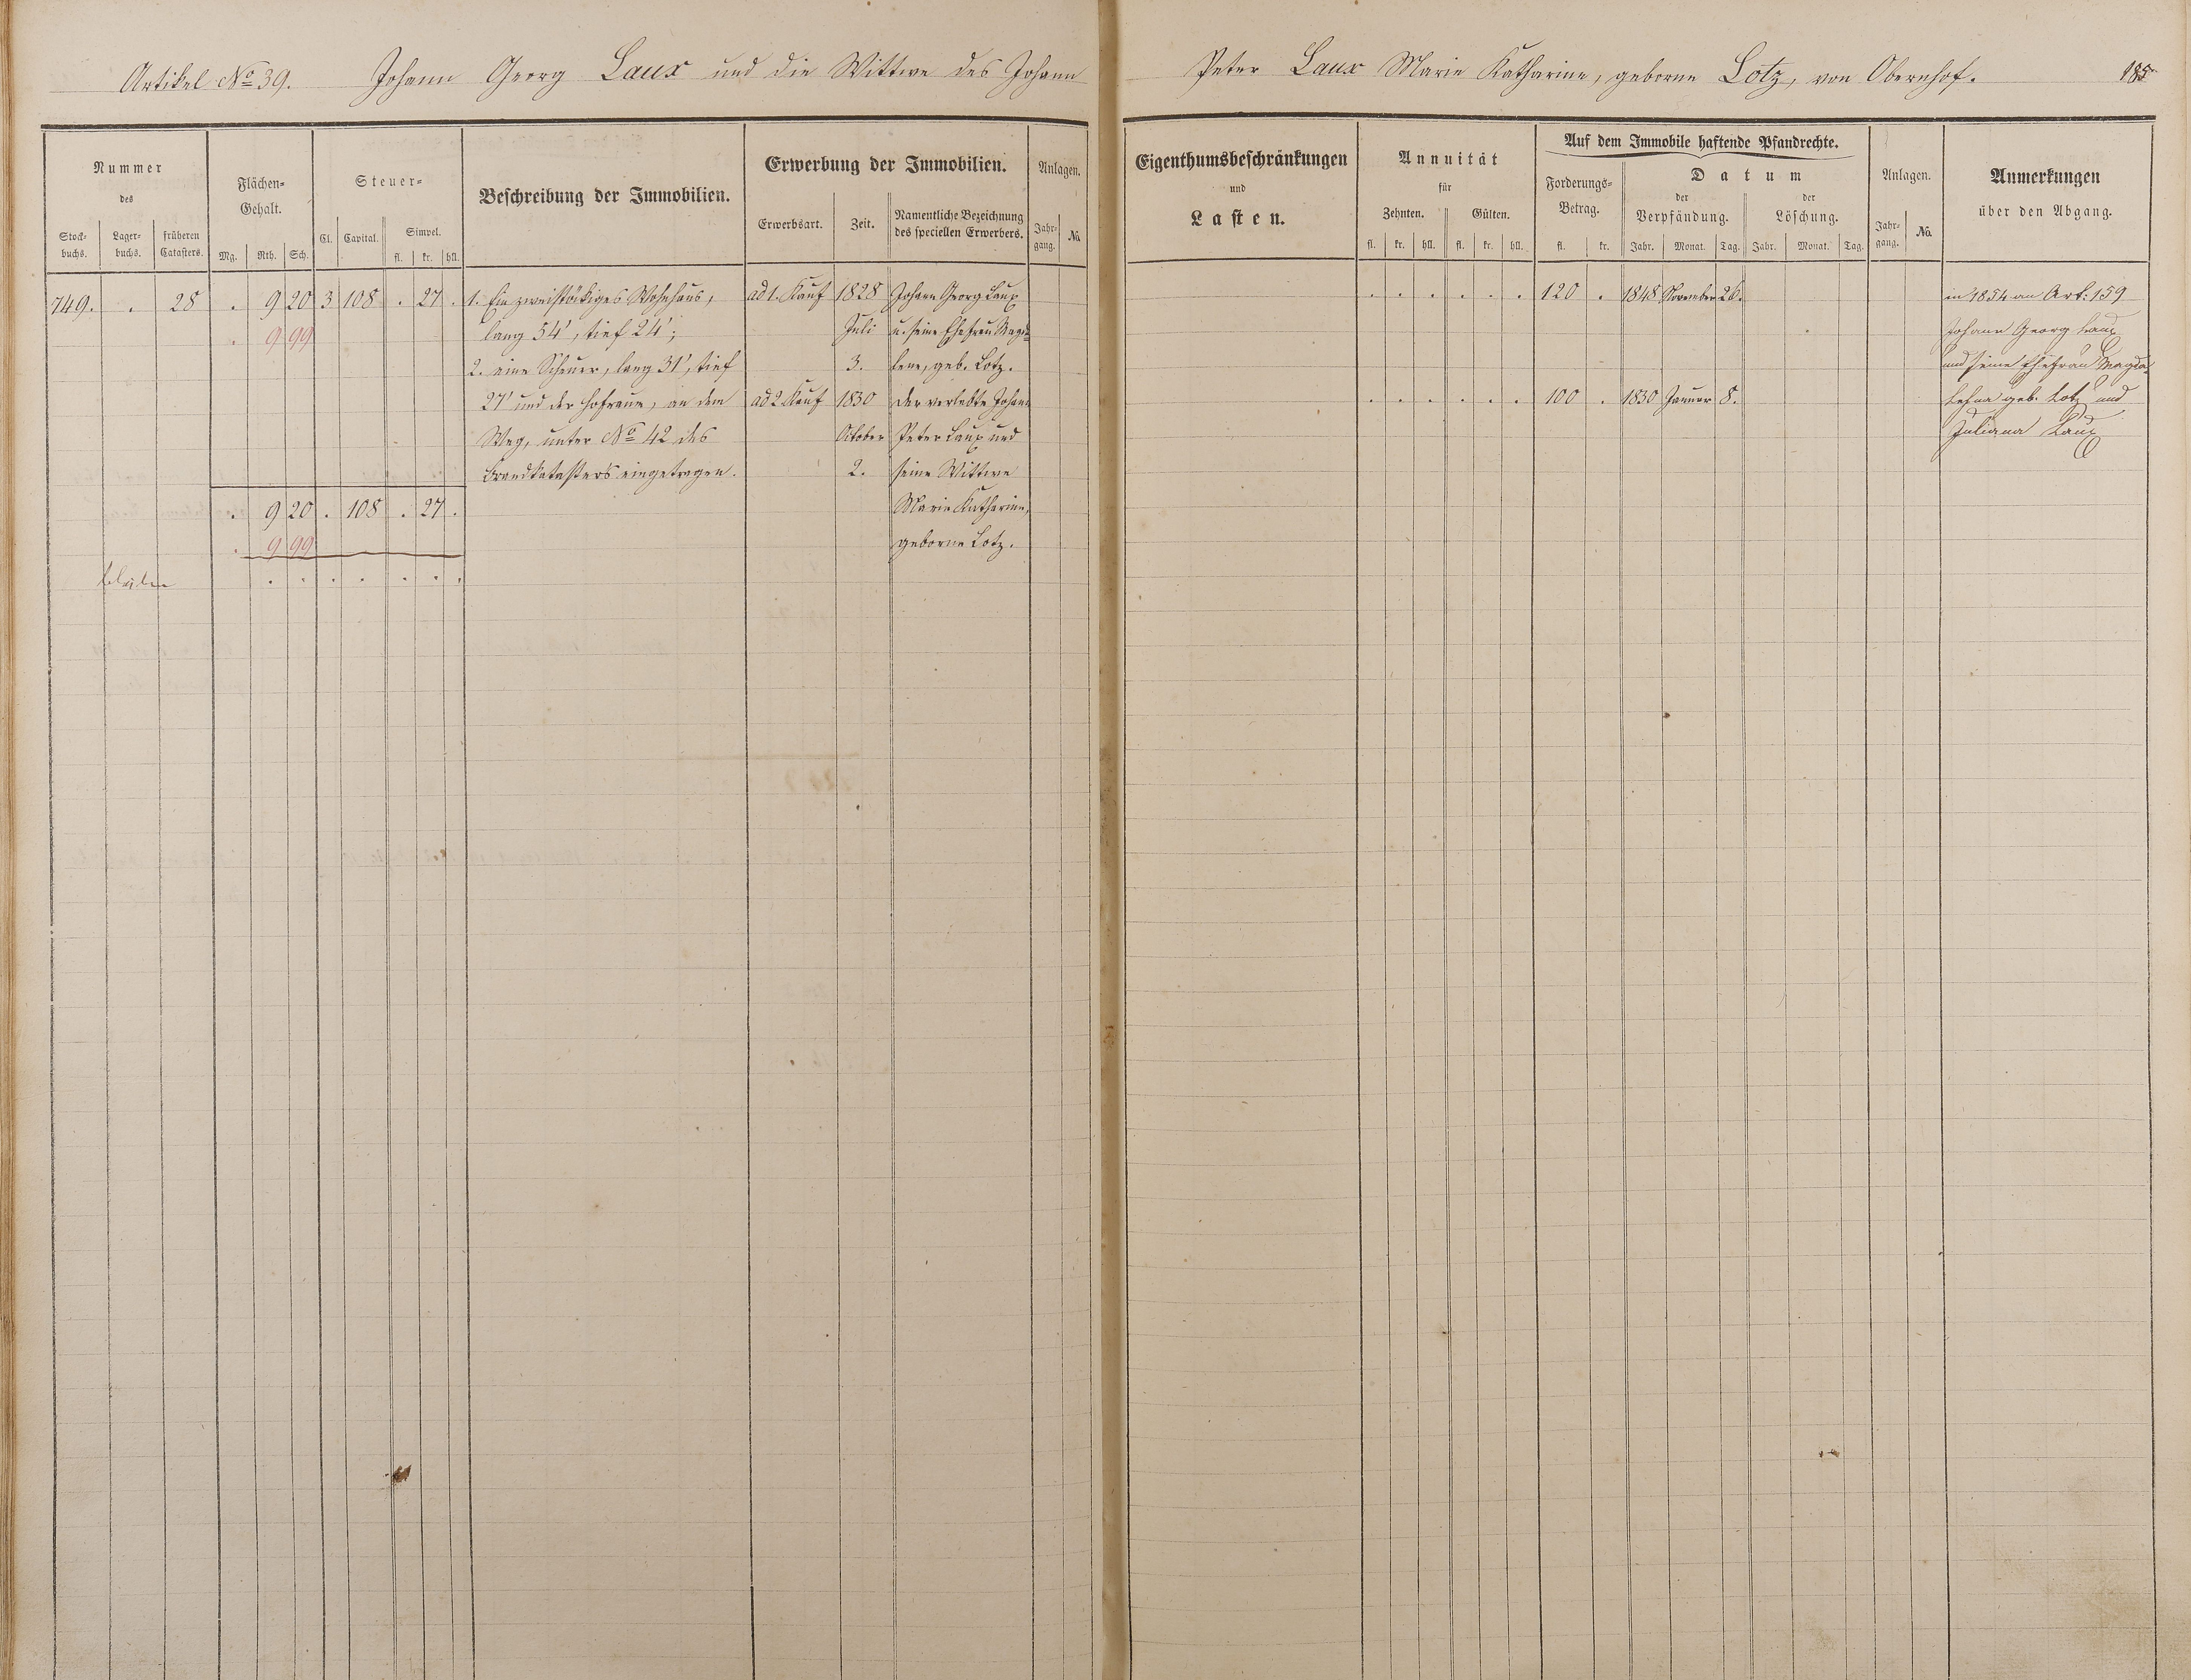 Artikel No 39. Johann Georg Laux und die Wittwe des Johann
Peter Laux Marie Katharine, geborne Lotz, von Obernhof. 185
Nummer
des
Stock-
buchs.
Lager-
buchs.
früheren
Catasters.
Flächen-
Gehalt.
Mg. Rth. Sch.
Steuer-
Cl. Capital.
Simpel.
fl. kr. hll.
Beschreibung der Immobilien.
Erwerbung der Immobilien.
Erwerbsart. Zeit.
Namentliche Bezeichnung
des speciellen Erwerbers.
Anlagen.
Jahr-
gang.
No.
749. . 28 . 9 20 3 108 . 27 . 1. Ein zweistöckiges Wohnhaus, ad 1. Kauf 1828 Johann Georg Laux
. 9 99 lang 54', tief 24'; Juli u. seine Ehefrau Magda-
2. eine Scheuer, lang 31', tief 3. lene, geb. Lotz.
27' und der Hofraum, an dem ad 2 Kauf 1830 der verlebte Johann
Weg, unter No 42 des October Peter Laux und
Brandkatasters eingetragen. 2. seine Wittwe
. 9 20 . 108 . 27 . Marie Katharine,
. 9 99 geborne Lotz.
bleiben . . . . . . .
Eigenthumsbeschränkungen
und
Lasten.
Annuität
für
Zehnten. Gülten.
fl. kr. hll. fl. kr. hll.
Auf dem Immobile haftende Pfandrechte.
Forderungs-
Betrag.
fl. kr.
Datum
der
Verpfändung.
Jahr. Monat. Tag.
der
Löschung.
Jahr. Monat. Tag.
Anlagen.
Jahr-
gang.
No.
Anmerkungen
über den Abgang.
. . . . . . 120 . 1848 November 26. in 1854 an Art: 159
Johann Georg Laux
und seine Ehefrau Magda-
. . . . . . 100 . 1830 Januar 8. lehna geb. Lotz und
Juliana Laux